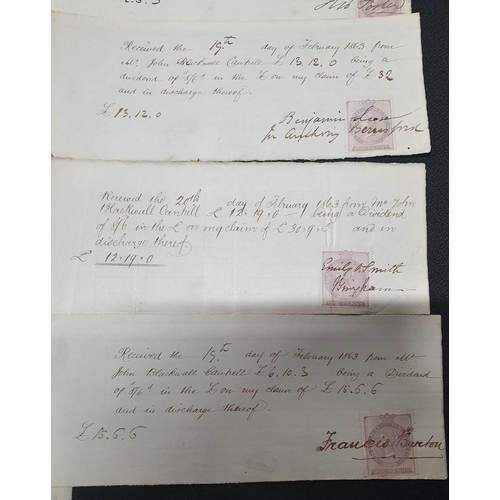 Received the 19th day of February 1863 from
Mr. John Blackwall Cantrell £13.12.0 being a
dividend of 8/6 in the £ on my claim of £32
and in discharge thereof.
£13.12.0
Benjamin
for Anthony Beresford
Received the 20th day of February 1863 from Mr John
Blackwall Cantrill £12.19.0 being a Dividend
of 8/6 in the £ on my claim of £30.9. and in
discharge thereof
£12.19.0
Emily D. Smith
Bingham
Received the 19th day of February 1863 from Mr
John Blackwall Cantrell £6.10.3 being a Dividend
of 8/6 in the £ on my claim of £15.6.6
and in discharge thereof.
£15.6.6
Francis Burton